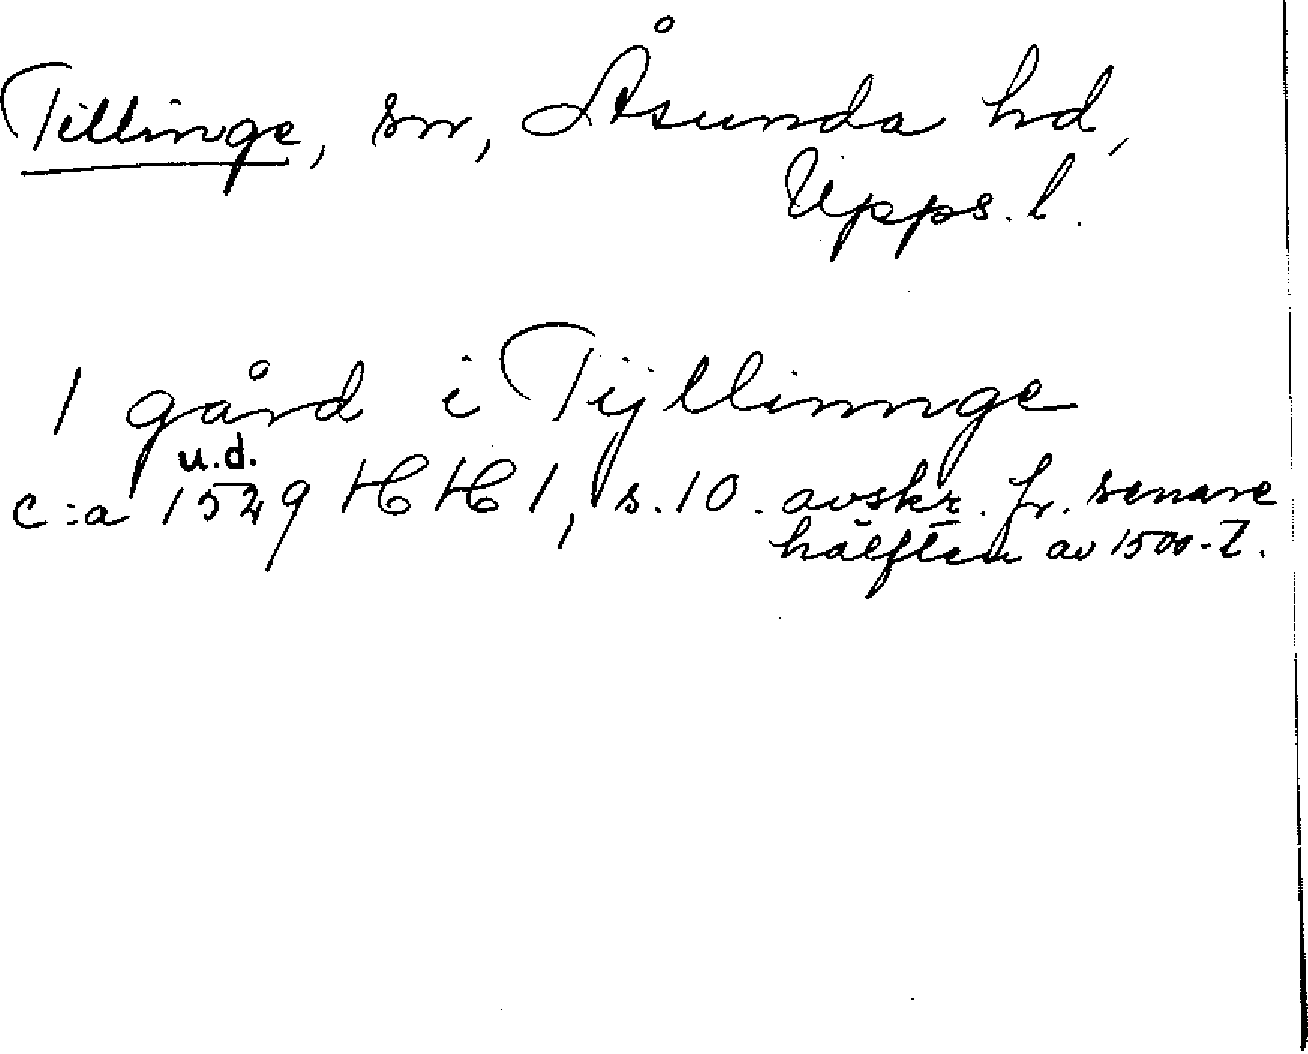 Tillinge, sn, Åsunda hd,
Upps. l.
1 gård i Tijllinnge
u.d.
c:a 1529 HH 1, s. 10. avskr. fr. senare
hälften av 1500-t.